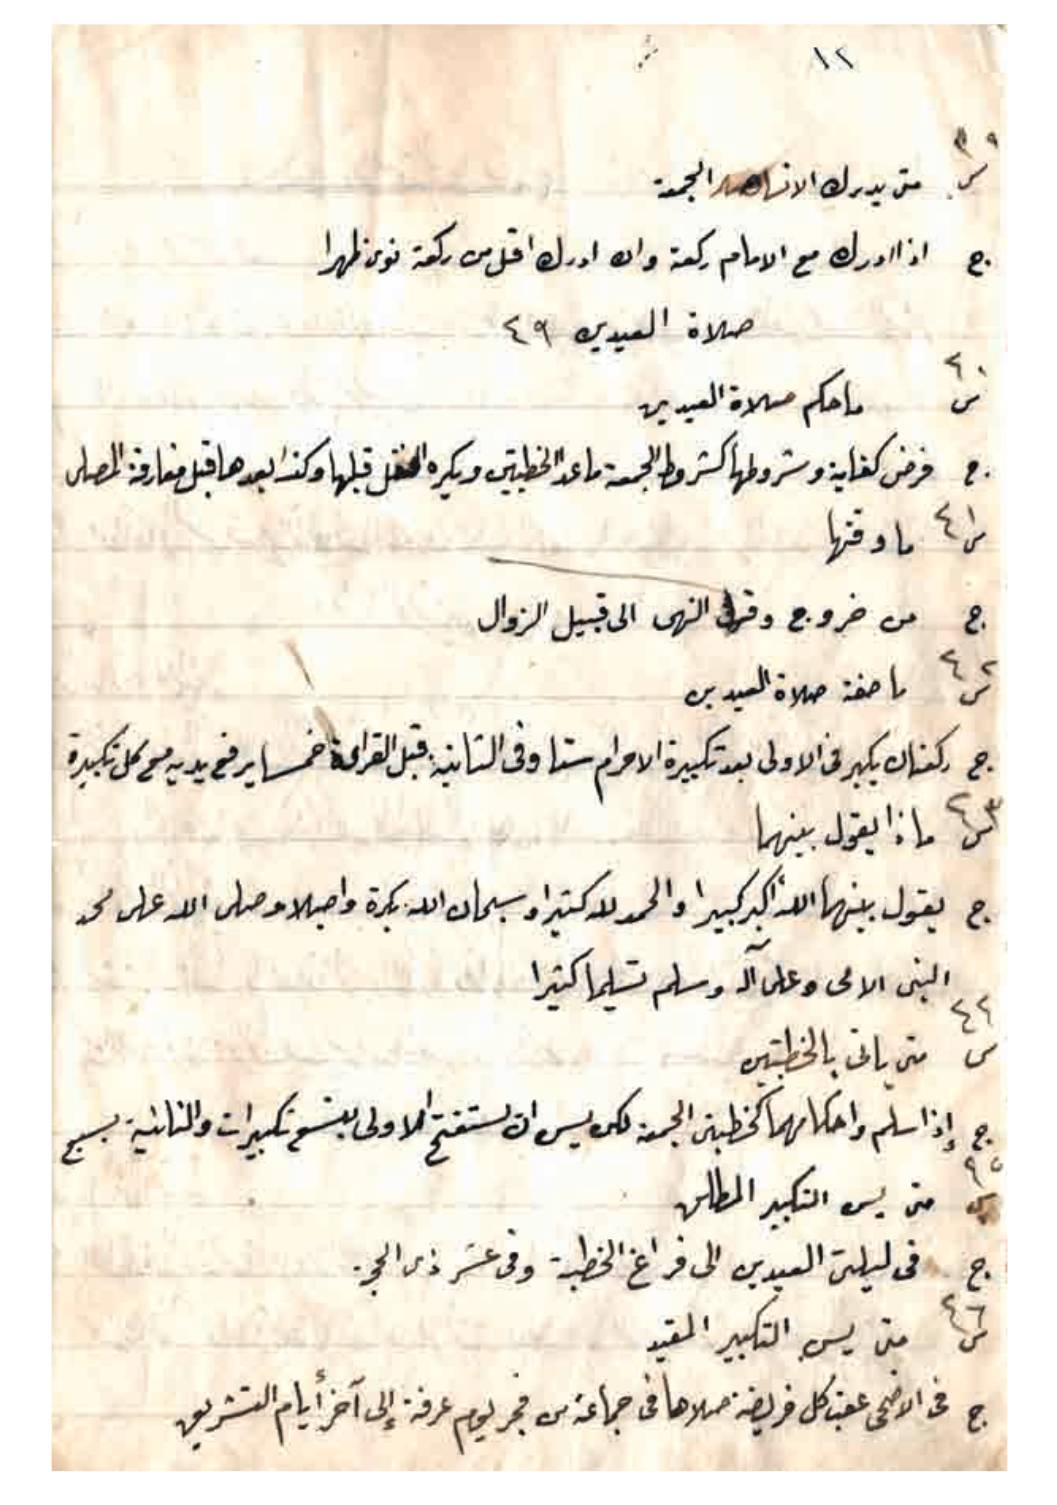 ١٢
س ٣٩ متى يدرك الانسان الجمعة
ج اذا ادرك مع الامام ركعة وان ادرك اقل من ركعة نوى ظهرا
صلاة العيدين ٤٩
س ٤٠ ما حكم صلاة العيدين
ج فرض كفاية وشروطها كشروط الجمعة ما عدا الخطبتين ويكره النفل قبلها وكذا بعدها قبل مفارقة المصلى
س ٤١ ما وقتها
ج من خروج وقت النهى الى قبيل الزوال
س ٤٢ ما صفة صلاة العيدين
ج ركعتان يكبر فى الاولى بعد تكبيرة الاحرام ستا وفى الثانية قبل القراءة خمسا يرفع يديه مع كل تكبيرة
س ٤٣ ماذا يقول بينهما
ج يقول بينهما الله أكبر كبيرا والحمد لله كثيرا وسبحان الله بكرة واصيلا وصلى الله على محمد
النبى الامى وعلى آله وسلم تسليما كثيرا
س ٤٤ متى يأتى بالخطبتين
ج إذا سلم واحكامهما كخطبتى الجمعة لكن يسن ان يستفتح الاولى بتسع تكبيرات والثانية بسبع
س ٤٥ متى يسن التكبير المطلق
ج فى ليلتى العيدين الى فراغ الخطبة وفى عشر ذى الحجة
س ٤٦ متى يسن التكبير المقيد
ج فى الاضحى عقب كل فريضة صلاها فى جماعة من فجر يوم عرفة إلى آخر أيام التشريق